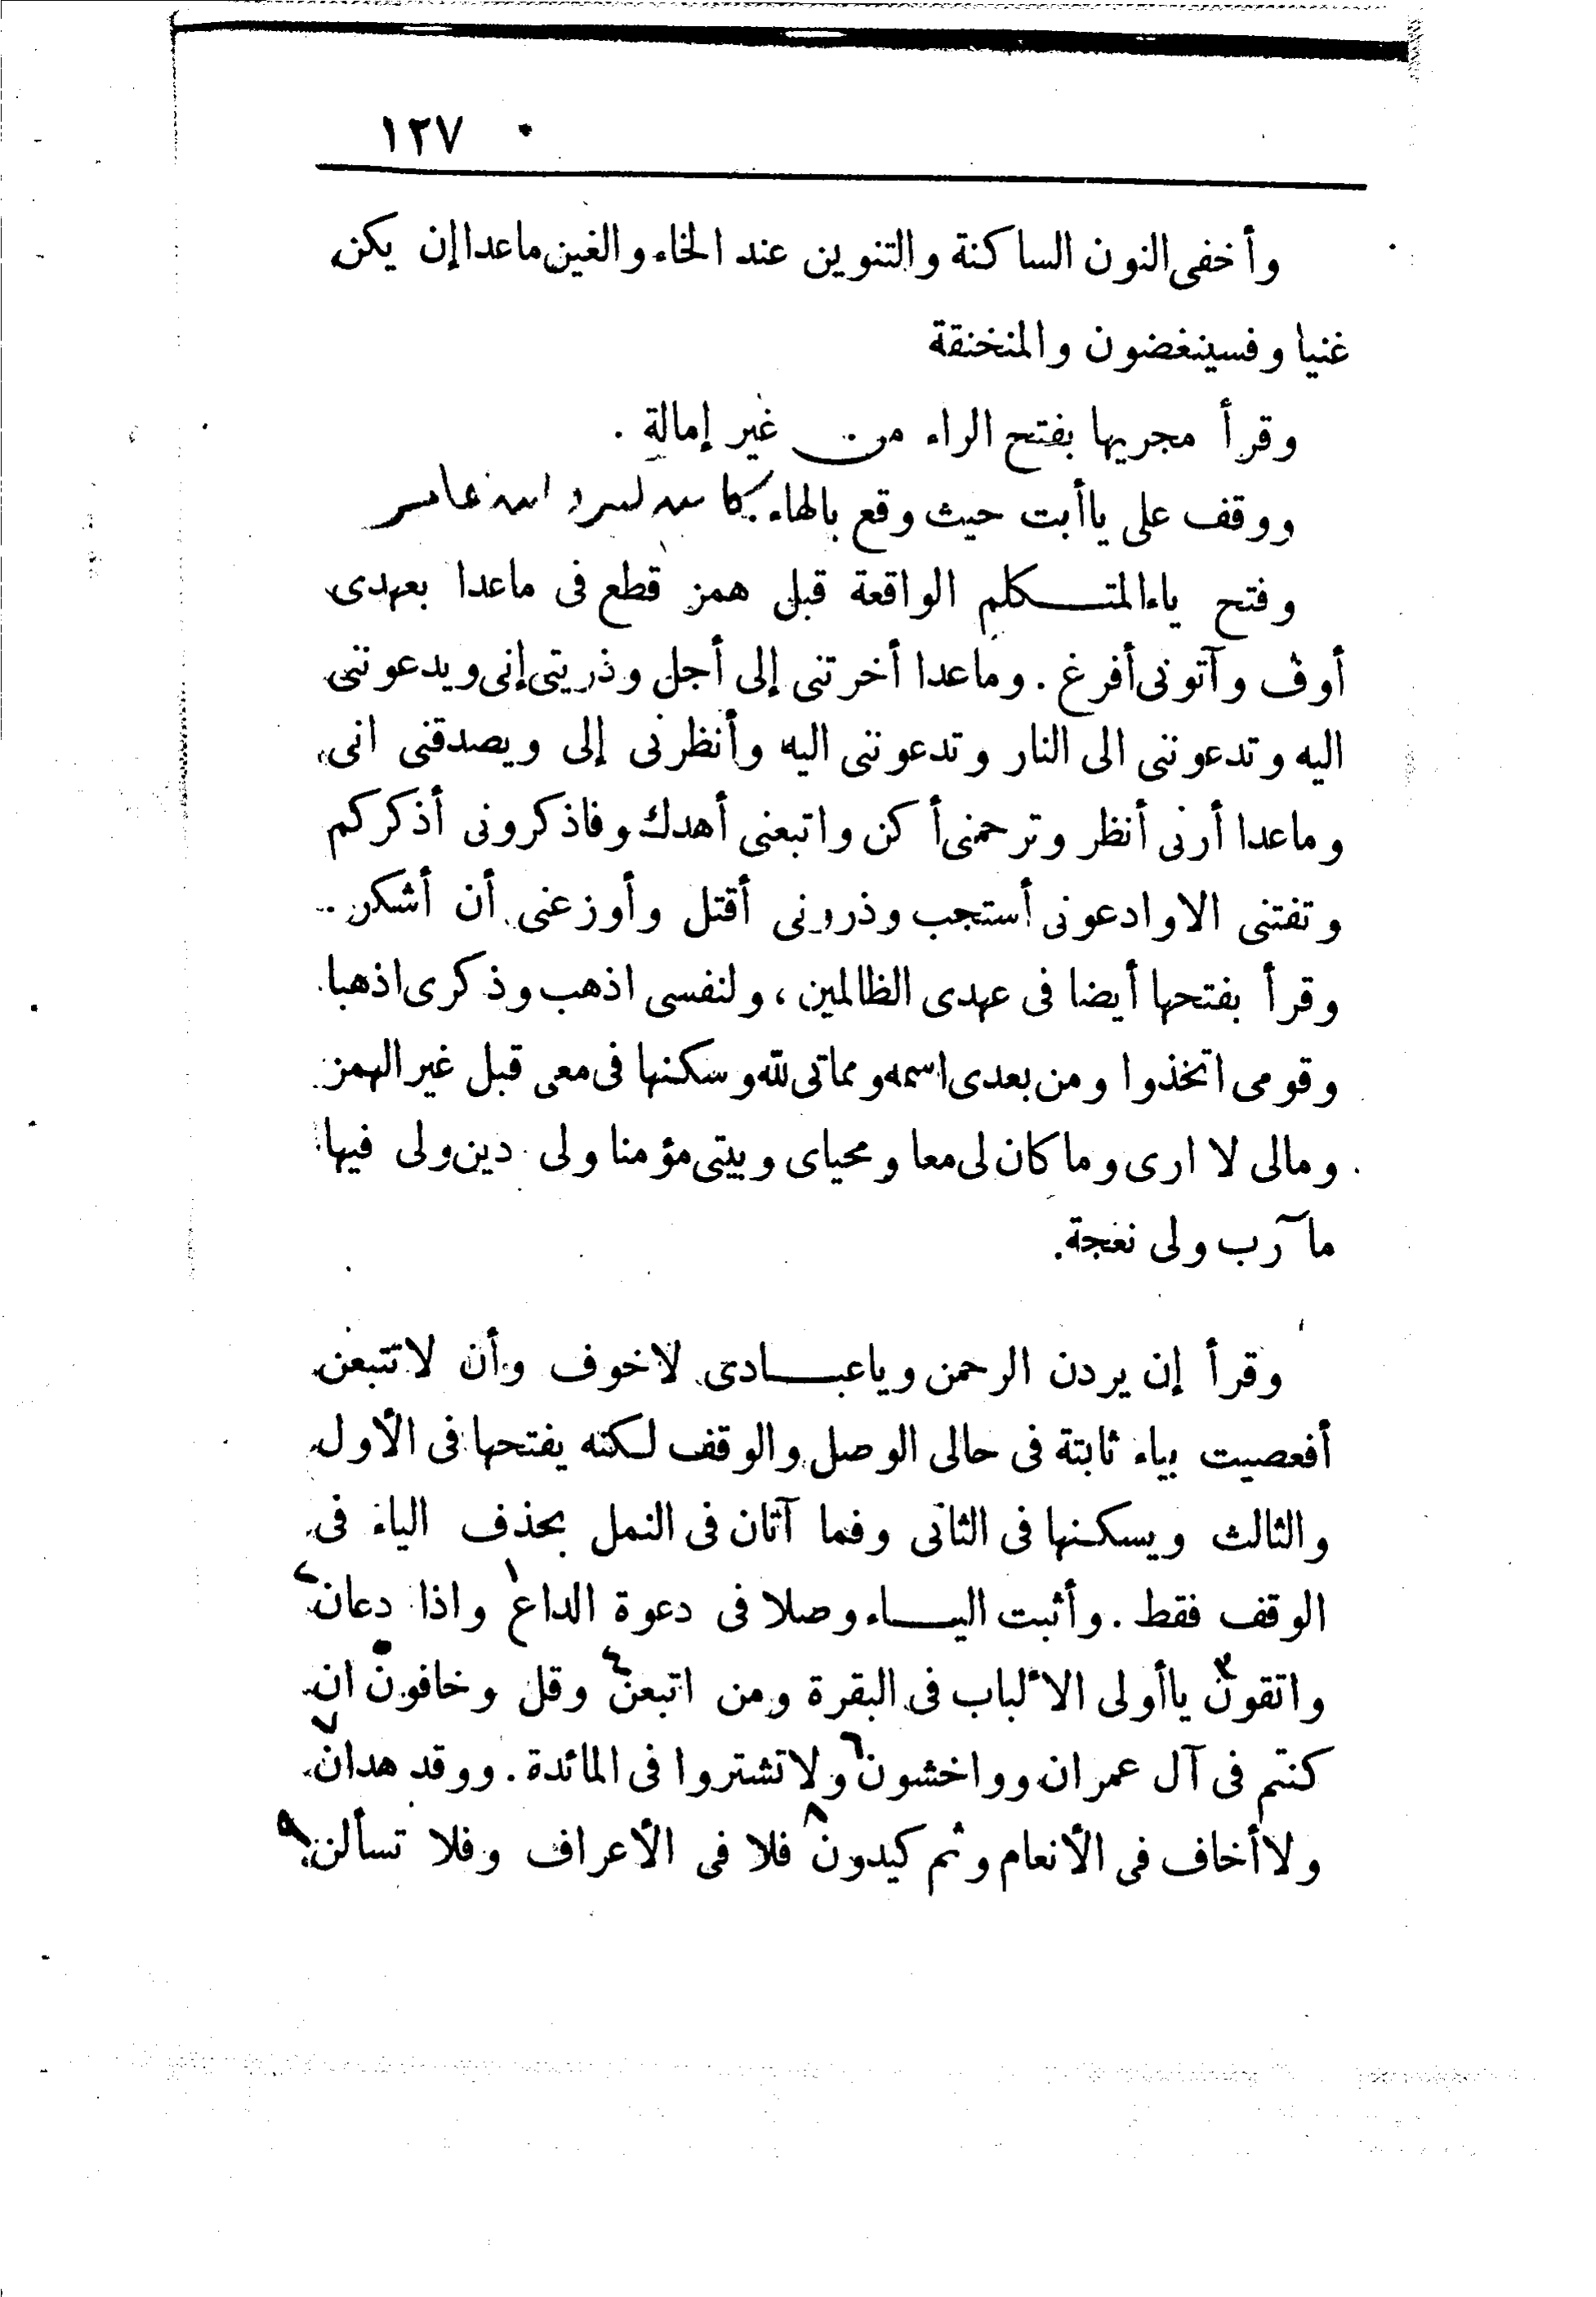 ١٢٧
وأخفى النون الساكنة والتنوين عند الخاء والغين ماعدا إن يكن
غنيا وفسينغضون والمنخنقة
وقرأ مجريها بفتح الراء من غير إمالة .
ووقف على ياأبت حيث وقع بالهاء. كا
وفتح ياء المتكلم الواقعة قبل همز قطع فى ماعدا بعهدى
أوف وآتونى أفرغ . وماعدا أخرتنى إلى أجل وذريتى إنى ويدعوننى
اليه وتدعوننى الى النار وتدعوننى اليه وأنظرنى إلى ويصدقنى انى
وماعدا أرنى أنظر وترحمنى أكن واتبعنى أهدك وفاذكرونى أذكركم
وتفتنى الا وادعونى أستجب وذرونى أقتل وأوزعنى أن أشكر .
وقرأ بفتحها أيضا فى عهدى الظالمين ، ولنفسى اذهب وذكرى اذهبا
وقومى اتخذوا ومن بعدى اسمه ومماتى لله وسكنها فى معى قبل غير الهمز
ومالى لا ارى وما كان لى معا ومحياى وبيتى مؤمنا ولى دين ولى فيها
مآرب ولى نعجة.
وقرأ إن يردن الرحمن وياعبادى لاخوف وأن لا تتبعن
أفعصيت بياء ثابتة فى حالى الوصل والوقف لكنه يفتحها فى الأول
والثالث ويسكنها فى الثانى وفما آتان فى النمل بحذف الياء فى
الوقف فقط . وأثبت الياء وصلا فى دعوة الداع ١ واذا دعان ٢
واتقون ٣ ياأولى الألباب فى البقرة ومن اتبعن ٤ وقل وخافون ٥ ان
كنتم فى آل عمران وواخشون ٦ ولا تشتروا فى المائدة . ووقد هدان ٧
ولا أخاف فى الأنعام وثم كيدون ٨ فلا فى الأعراف وفلا تسألن ٩